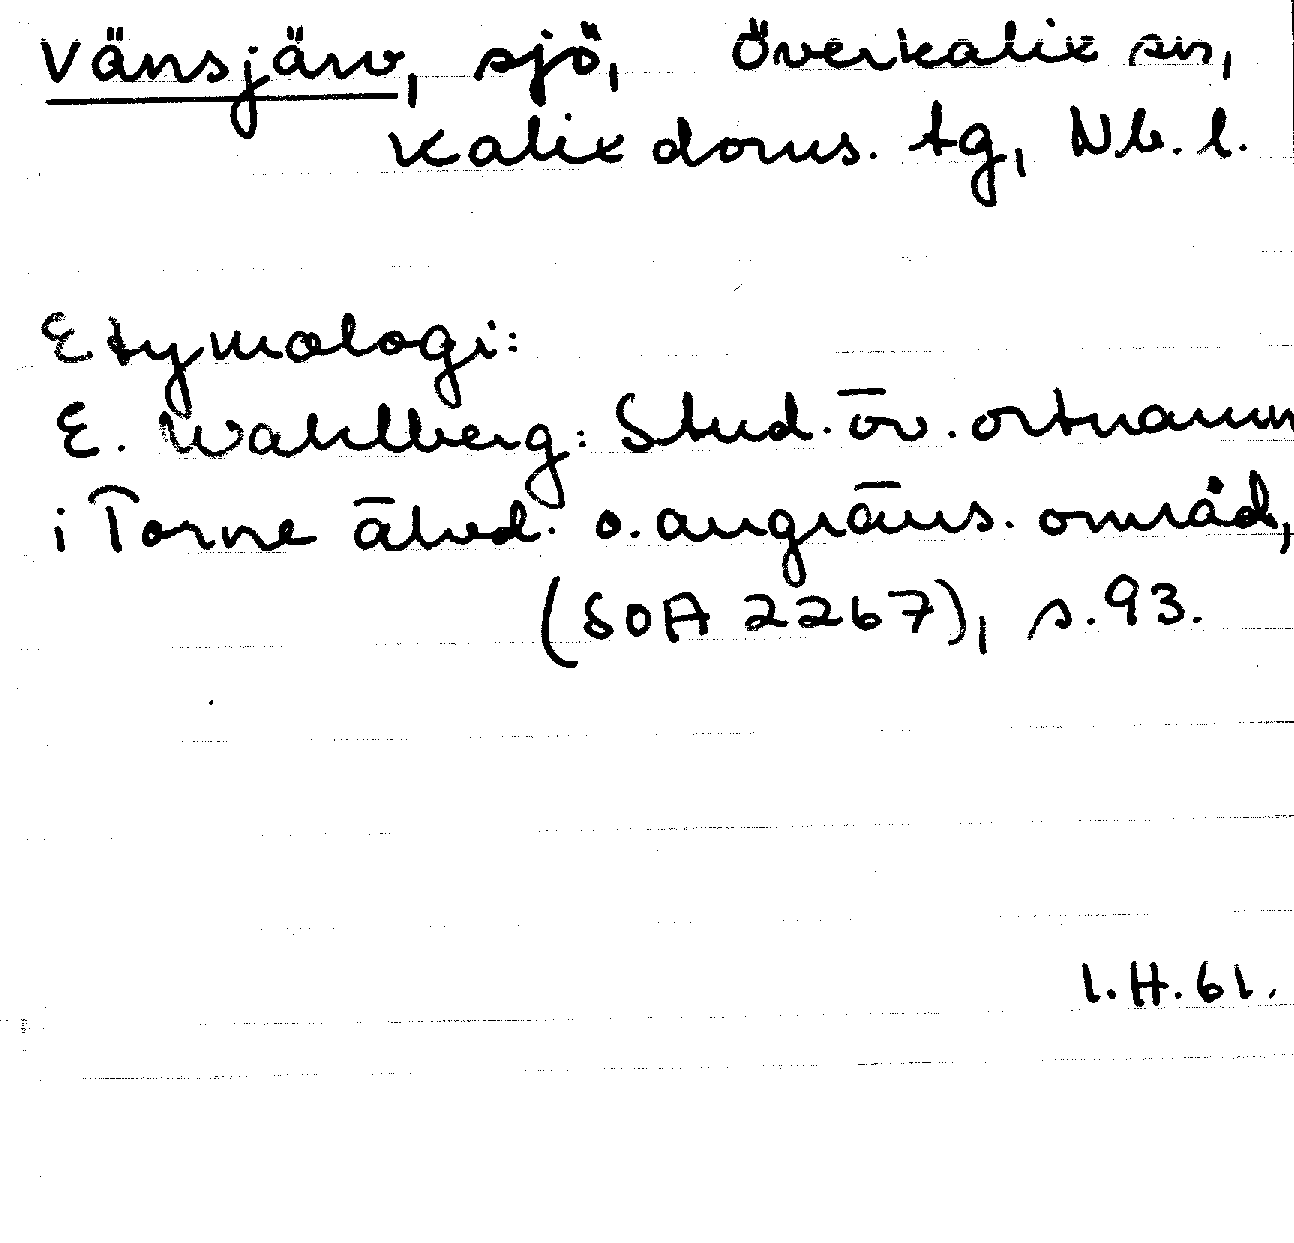 Vänsjärv, sjö, Överkalix sn,
Kalix doms. tg, Nb. l.
Etymologi:
E. Wahlberg: Stud. öv. ortnamn
i Torne älvd. o. angräns. områd,
(SOA 2267), s. 93.
I.H. 61.